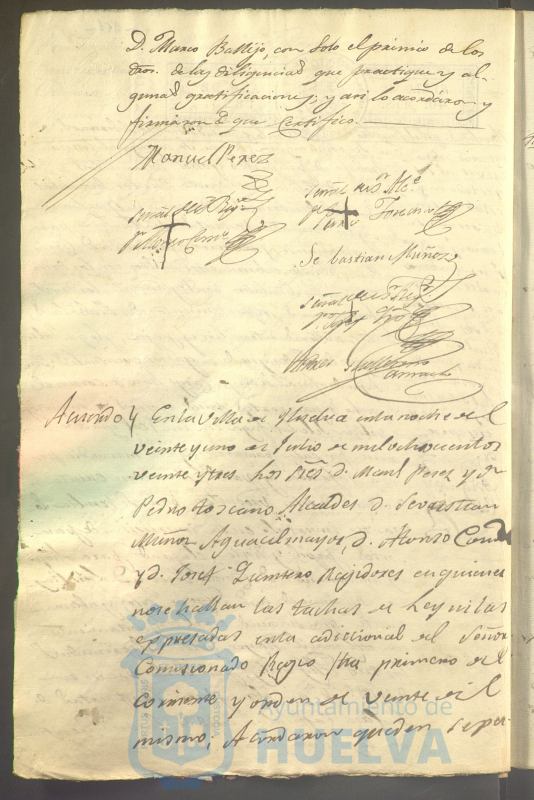 D. Marco Ballejo, con solo el premio de los
dros. de las diligencias que practique y al-
gunas gratificaciones; y asi lo acordaron y
firmaron de que Certifico.
Manuel Perez
señal del Sr. Alce.
señal del Sr. Regr.
Toscano
Sebastian Muñoz
señal del Sr. Regr.
Acuerdo } En la villa de Huelva en la noche del
veinte y uno de Julio de mil ochocientos
veinte y tres los Sres. D. Manl Perez y Dn
Pedro toscano Alcaldes D. Sevastian
Muñoz Aguacil mayor, D. Alonso
y D. Josef Quintero Regidores en quienes
no se hallan las tachas de Ley ni las
expresadas en la adicional del Señor
Comisionado Regio fha primero del
Corriente y orden de veinte del
mismo, Acordaron queden repo-
Ayuntamiento de
HUELVA